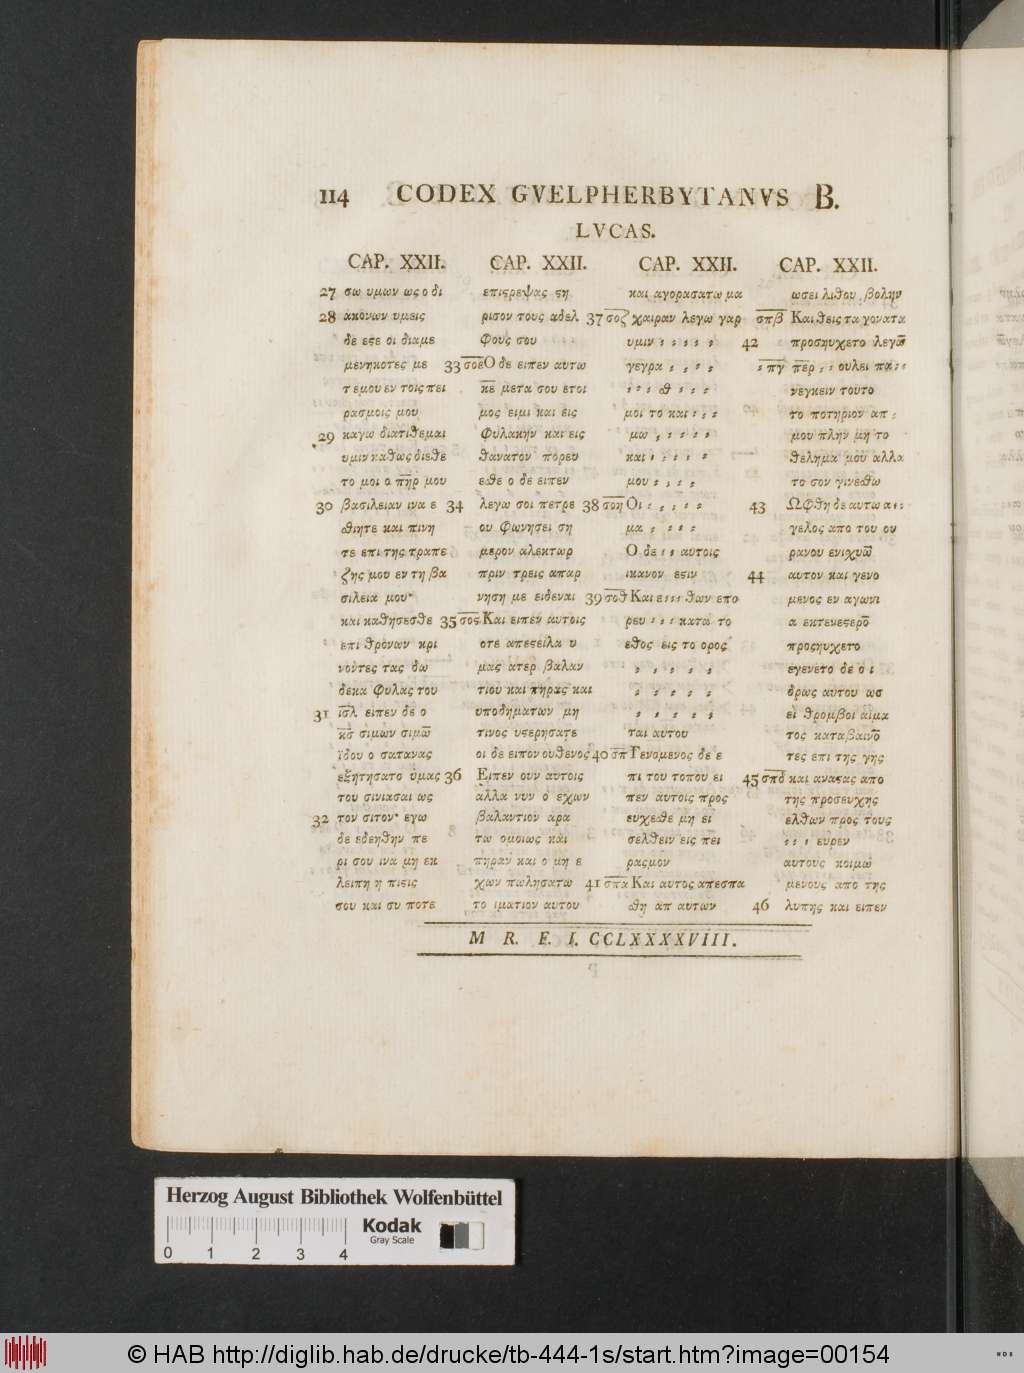 114 CODEX GVELPHERBYTANVS B.
LVCAS.
CAP. XXII.
27 σω υμων ως ο δι
28 ακονων υμεις
δε εϛε οι διαμε
μενηκοτες με
τ εμου εν τοις πει
ρασμοις μου
29 καγω διατιθεμαι
υμιν καθως διεθε
το μοι ο π̅η̅ρ̅ μου
30 βασιλειαν ινα ε
σθιητε και πινη
τε επι της τραπε
ζης μου εν τη βα
σιλεια μου·
και καθησεσθε
επι θρονων κρι
νοντες τας δω
δεκα φυλας του
31 ι̅σ̅λ̅ ειπεν δε ο
κ̅ς̅ σιμων σιμω̅
ϊδου ο σατανας
εξητησατο ϋμας
του σινιασαι ως
32 τον σιτον· εγω
δε εδεηθην πε
ρι σου ινα μη εκ
λειπη η πιϛις
σου και συ ποτε
CAP. XXII.
επιϛρεψας ϛη
ρισον τους αδελ
φους σου
33 σ̅ο̅ε̅ Ο δε ειπεν αυτω
κ̅ε̅ μετα σου ετοι
μος ειμι και εις
φυλακην και εις
θανατον πορευ
εσθε ο δε ειπεν
34 λεγω σοι πετρε
ου φωνησει ση
μερον αλεκτωρ
πριν τρεις απαρ
νηση με ειδεναι
35 σ̅ο̅ς̅ Και ειπεν αυτοις
οτε απεϛειλα υ
μας ατερ βαλαν
τιου και πηρας και
υποδηματων μη
τινος υϛερησατε
οι δε ειπον ουθενος
36 Ειπεν ουν αυτοις
αλλα νυν ο εχων
βαλαντιον αρα
τω ομοιως και
πηραν και ο μη ε
χων πωλησατω
το ιματιον αυτου
CAP. XXII.
και αγορασατω μα
37 σ̅ο̅ζ̅ χαιραν λεγω γαρ
υμιν : : : : :
γεγρα : : : :
: : : σθ : : :
μοι το και : : :
μω : : : : :
και : : : : :
μου : : : :
38 σ̅ο̅η̅ Οι : : : : :
μα : : : :
Ο δε : : αυτοις
ικανον εϛιν
39 σ̅ο̅θ̅ Και ε : : : θων επο
ρευ : : : κατα το
εθος εις το ορος
: : : : :
: : : : :
: : : : :
ται αυτου
40 σ̅π̅ Γενομενος δε ε
πι του τοπου ει
πεν αυτοις προς
ευχεσθε μη ει
σελθειν εις πει
ρασμον
41 σ̅π̅α̅ Και αυτος απεσπα
σθη απ αυτων
CAP. XXII.
ωσει λιθου βολην
σ̅π̅β̅ Και θεις τα γονατα
42 προσηυχετο λεγω̅
: π̅γ̅ π̅ε̅ρ̅ : : ουλει πα : :
νεγκειν τουτο
το ποτηριον απ :
μου πλην μη το
θελημα μου αλλα
το σον γινεσθω
43 Ωφθη δε αυτω α : :
γελος απο του ου
ρανου ενισχυω̅
44 αυτον και γενο
μενος εν αγωνι
α εκτενεϛερο̅
προσηυχετο
εγενετο δε ο ι
δρως αυτου ωσ
ει θρομβοι αιμα
τος καταβαινο̅
τες επι της γης
45 σ̅π̅δ̅ και αναϛας απο
της προσευχης
ελθων προς τους
: : : ευρεν
αυτους κοιμω
μενους απο της
46 λυπης και ειπεν
M R. F. I. CCLXXXXVIII.
Herzog August Bibliothek Wolfenbüttel
0 1 2 3 4
Kodak
Gray Scale
© HAB http://diglib.hab.de/drucke/tb-444-1s/start.htm?image=00154